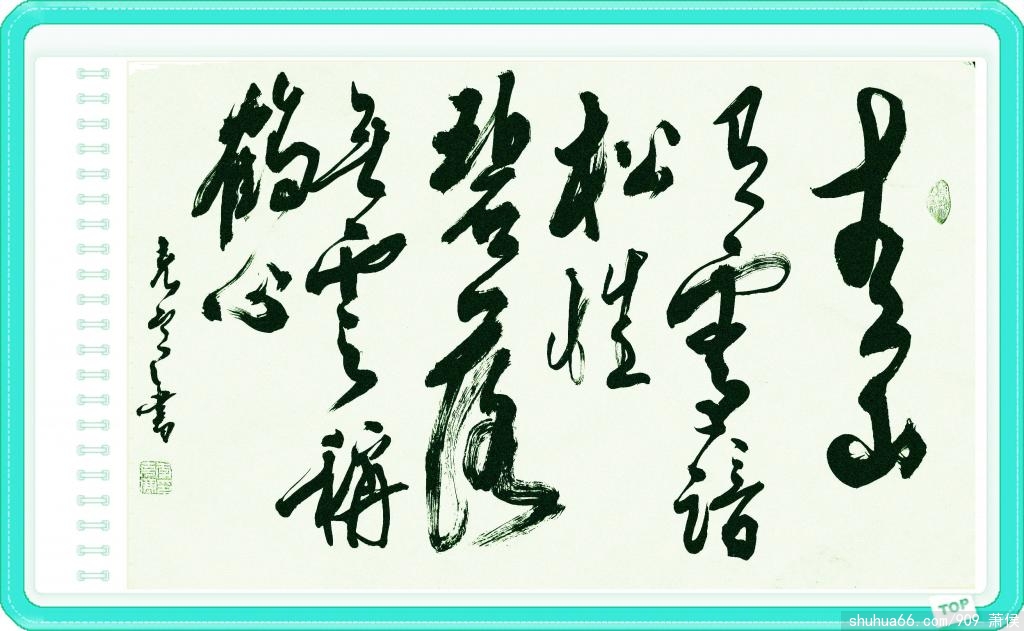 青山
有雪諳
松性
碧落
無雲稱
鶴心
書
TOP
shuhua66.com/909 萧侯